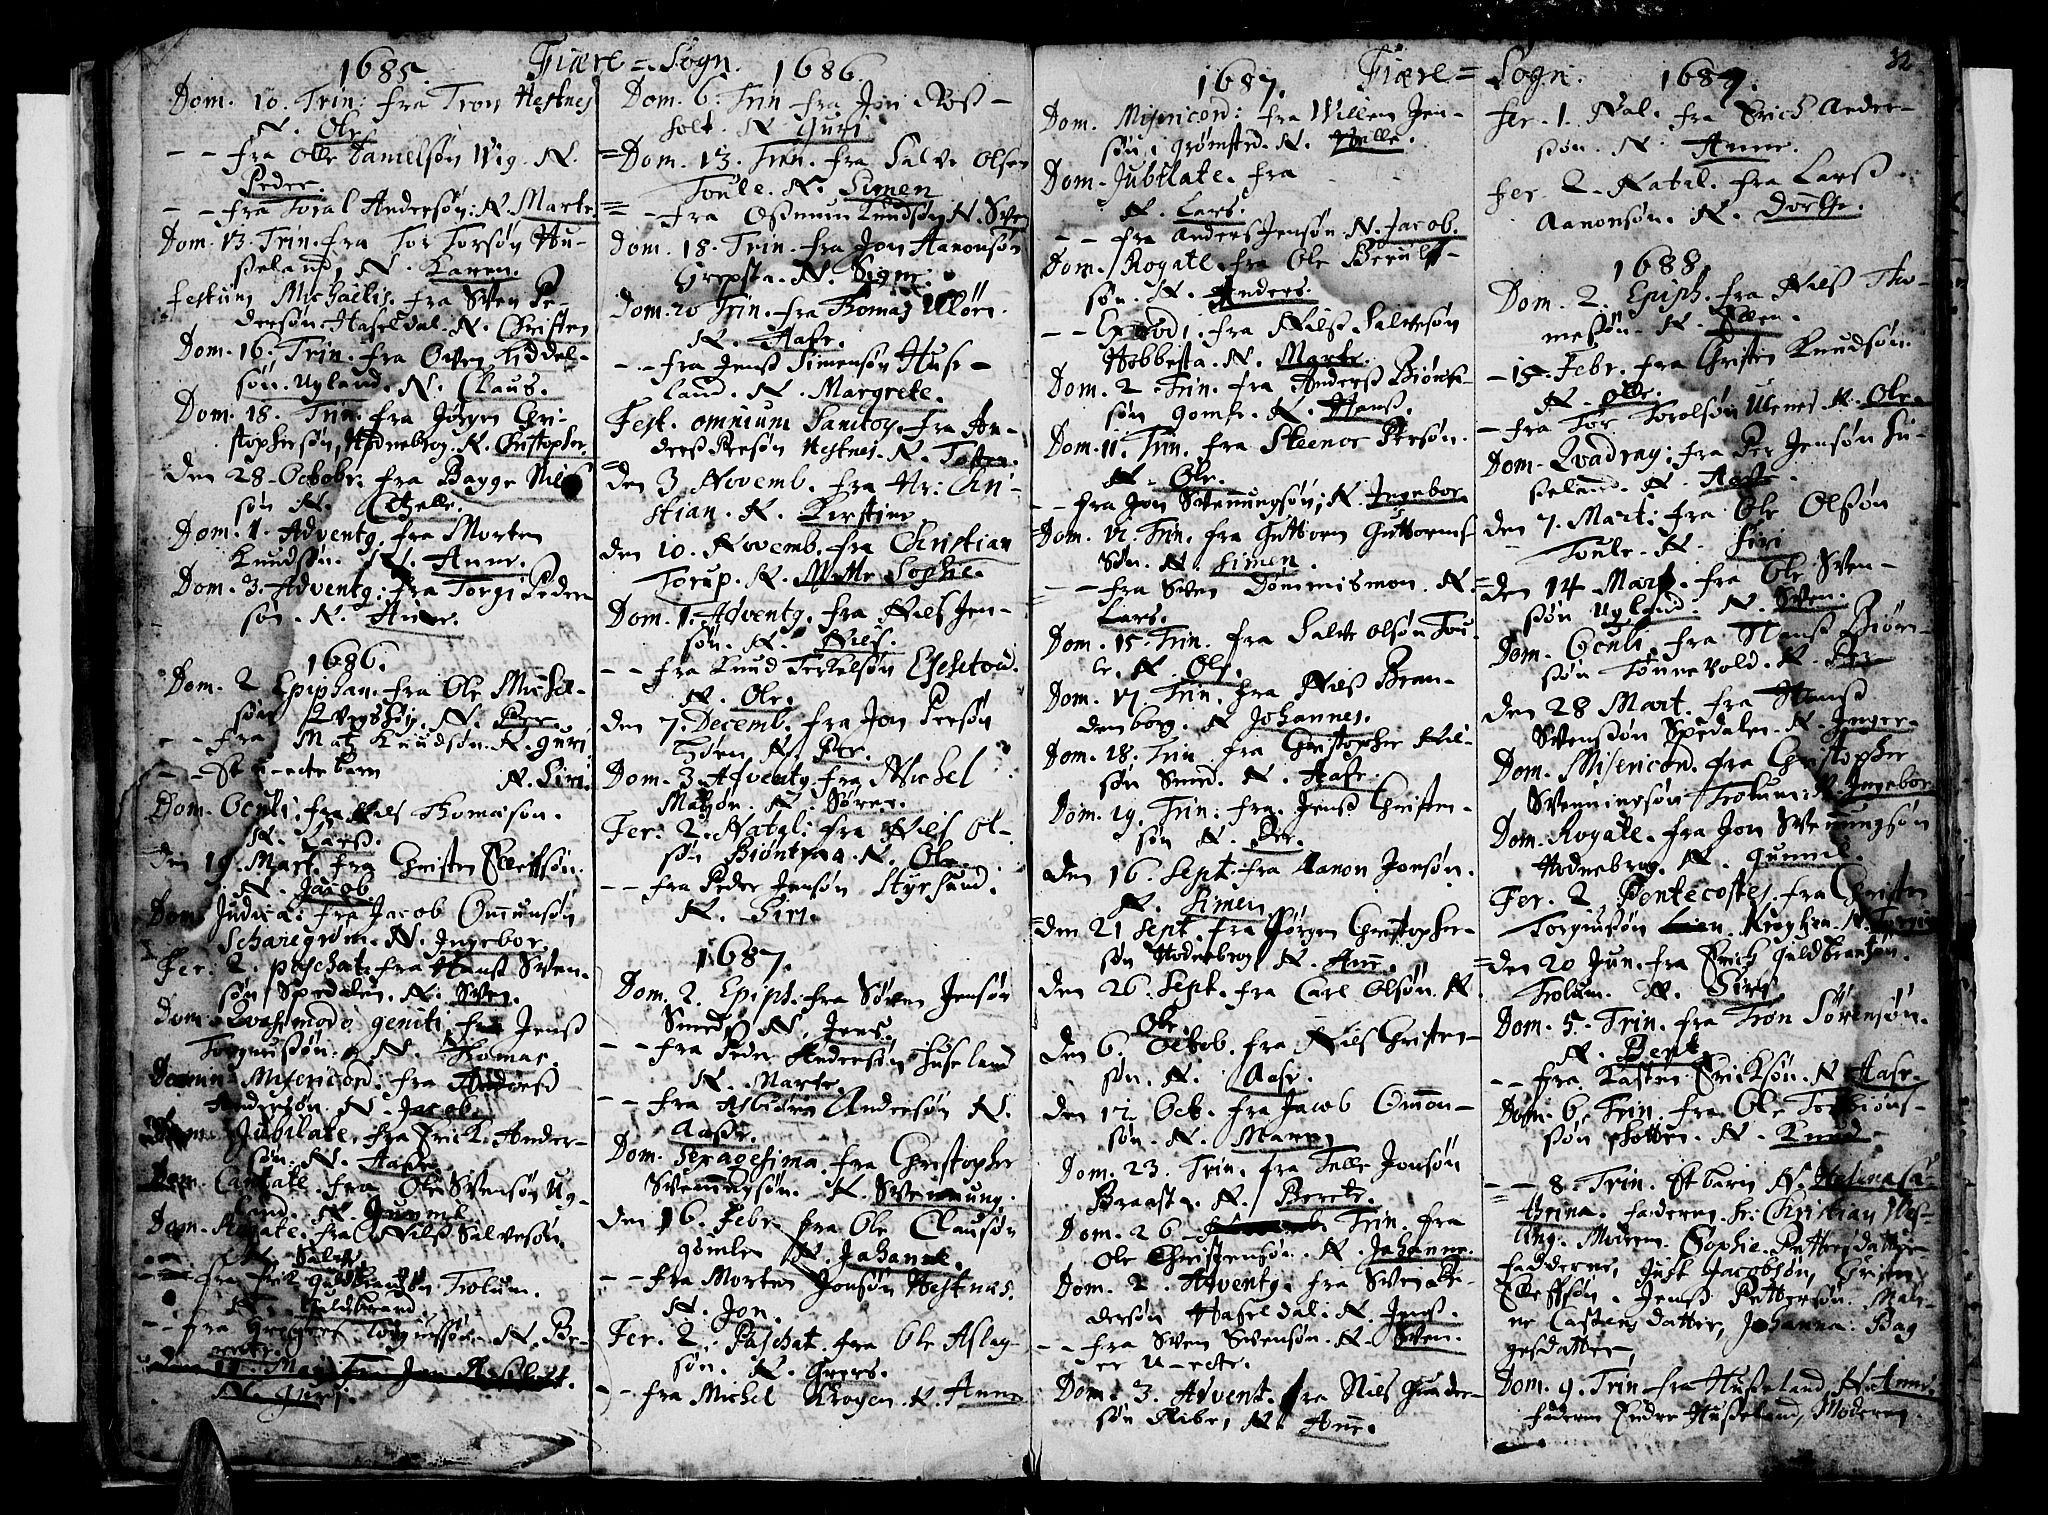 Fiære = Sogn.
1685.
Dom. 10. Trin: fra Tron Hestnes
N. Ole
- - fra Olle Danielsøn Wig. N.
Peder.
- - fra Toral Andersøn: N. Marte.
Dom. 13. Trin. fra Tor Torsøn Hu-
seland, N. Karen.
Festum Michaelis. fra Swen Pe-
dersøn Haseldal. N. Christen
Dom. 16. Trin. fra Owen Kiddel-
søn. Ugland. N. Claus.
Dom. 18. Trin. fra Jørgen Chri-
stophersøn, Hodnebrog. N. Christopher.
den 28. Octobr. fra Bagge Nils
søn N.
Dom. 1. Adventg. fra Morten
Knudsøn. N. Anne.
Dom. 3. Adventg: fra Torgi Peder
søn. N. Anne.
1686.
Dom. 2 Epiphan. fra Ole Michel-
søn N. Per
- - fra Matz Knudsøn. N. guri
- - Et u-ecte barn N. Siri.
Dom. Oculi. fra Nils Thomasøn.
N. Larss.
den 19. Mart. fra Christen Elleffsøn.
N. Jacob
Dom. Judica: fra Jacob Omunsøn
Scharegrøm. N. Ingebor.
Fer. 2. paschat. fra Hanss Swen-
søn Spedalen. N. Swen.
Dom. Qvasimodo geniti. fra Jenss
Torgiussøn. N. Thomas.
Domin: Misericord: fra Andress
Andersøn. N. Jacob.
Dom. Jubilate. fra Erick Ander-
søn. N. Aase
Dom. Cantate. fra Ole Swensøn Ug-
land. N. Gunnil
Dom. Rogate. fra Nilss Salvesøn.
N. Salve
- - fra Guldbrandsøn Trolum.
N. Guldbrand
- - fra Torgiussøn. N. Be-
rete.
fra Jon Rosholt.
N. guri.
1686.
Dom. 6. Trin fra Jon Ross-
holt. N Guri
= Dom. 13. Trin. fra Salve Olsen
Toule. N. Simen
= - fra Ossmun Knudsøn N. Swen
Dom. 18. Trin. fra Jon Aanonsøn
Grepsta. N. Signe.
Dom. 20 Trin. fra Thomas
N. Aase.
- - fra Jenss Simensøn Huse-
land. N. Margrete.
Fest. omnium Sanctor. fra An-
derss Persøn Hestnes. N. Tosten.
den 3 Novemb. fra Hr: Chri-
stian. N. Kirstine
den 10. Novemb. fra Christian
Torup. N. Mette Sophie.
Dom. 1. Adventg. fra Nils Jen-
søn. N. Niels.
- - fra Knud Terkelsøn Eskeland.
N. Ole.
den 7. Decemb. fra Jon Persøn
N. Per.
Dom. 3. Adventg. fra Michel
N. Søren.
Fer. 2. Natal: fra Nils Ol-
søn N. Ole.
- - fra Peder Jensøn Styrsund.
N. Siri.
1687.
Dom. 2. Epiph. fra Søren Jensøn
Smed. N. Jens.
- - fra Peder Andersøn Huseland
N. Marte.
- - fra Asbiørn Andersøn N.
Aasse.
Dom. Sexagesima. fra Christopher
Swenningsøn. N. Swennung.
den 16. Febr. fra Ole Clausøn
Gømle N. Johanne.
- - fra Morten Jonsøn Hestnes.
N. Jon.
Fer. 2. Paschat. fra Ole Aslag-
søn. N. Grers.
- - fra Michel Krogen. N. Anne
Fiære = Sogn.
32
1687.
Dom. Misericord: fra Willem Jen-
søn i grømsted. N. Helle.
Dom. Jubilate. fra - - -
N. Lars.
- - fra Anders Jensøn N. Jacob.
Dom. Rogate. fra Ole Berulf-
søn. N. Anders.
- - fra Nilss Salvesøn
Hobbesta. N. Marte.
Dom. 2 Trin. fra Anderss
søn gomle. N. Hanss.
Dom. 11. Trin. fra Steenor Persøn.
N. Ole.
- fra Jon Swennungsøn; N. Ingebor
= Dom. 12. Trin. fra Guttorm Guttorms-
søn. N. Simen.
- - fra Swen Dømmismon. N.
Lars.
Dom. 15. Trin. fra Salve Olsøn Tou-
le. N. Ole.
Dom. 17. Trin. fra Nilss Bran-
denborg. N Johannes.
Dom. 18. Trin. fra Christopher Nil-
søn Smed. N. Aase.
Dom. 19. Trin: fra Jenss Christen-
søn N. Per.
den 16. Sept. fra Aanon Jonsøn.
N. Simen
= den 21 Sept. fra Jørgen Christopher-
søn Hodnebrog N. Anne.
den 26. Sept. fra Carl Olsøn N.
Ole.
den 6. Octob. fra Nils Christen-
søn. N. Aase.
den 12 Oct. fra Jacob Omon-
søn. N. Maren
Dom. 23. Trin. fra Telle Jonsøn
Braasta. N. Berete.
Dom. 26. Trin. fra
Ole Christensøn. N. Johanne.
Dom. 2. Adventg. fra Swen Pe-
dersøn Haseldal: N. Jenss.
- - fra Swen Swensøn. N. Swen.
er u-ecte.
Dom. 3. Advent. fra Nils Gunder-
søn Ribe, N. Anne.
1687.
Fer. 1. Nat. fra Erich Ander-
søn. N. Anne.
Fer. 2. Natal. fra Larss
Aanonsøn. N. Dorthe.
1688.
Dom. 2. Epiph. fra Nilss Tho-
mesøn. N. Ellen.
- 15. Febr. fra Christen Knudsøn.
N. Olle.
- fra Tor Torolsøn Ulenes N. Ole.
Dom. Qvadrag: fra Per Jensøn Hu-
seland. N. Aase.
den 7. Marti fra Ole Olssøn
Toule. N. Siri
= den 14 Mart. fra Ole Swen-
søn Ugland. N. Swen.
Dom. Oculi. fra Hanss Biørn-
søn Tønnevold. N. Per
den 28 Mart. fra Hanss
Swenssøn Spedalen. N. Inger.
Dom. Misericord. fra Christopher
Swenningsøn Trolum: N. Ingebor
Dom. Rogate. fra Jon Swennungsøn
Hodnebrog. N. Gunnil.
Fer. 2. Pentecostes. fra Christen
Torgiussøn Krogken. N. Torgius
= den 20 Jun. fra Erich guldbrantsøn.
Trolum. N. Siri
Dom. 5. Trin. fra Tron Sørensøn.
N. Bent
- - fra. Karsten Ericksøn. N Aase.
Dom. 6. Trin. fra Ole Torbiøns-
søn N. Knud
- - 8. Trin. Et barn N. Helena Ca-
thrina. Faderen Hr: Christian
Moderen. Sophie. Pettersdatter
Fadderne, Just Jacobsøn, Christen
Elleffsøn. Jenss Pettersøn. Mal-
ne Castens datter, Johanna Bag
gesdatter,
Dom. 9. Trin fra Husseland, N. Anne.
Faderen Endre Husseland, Moderen